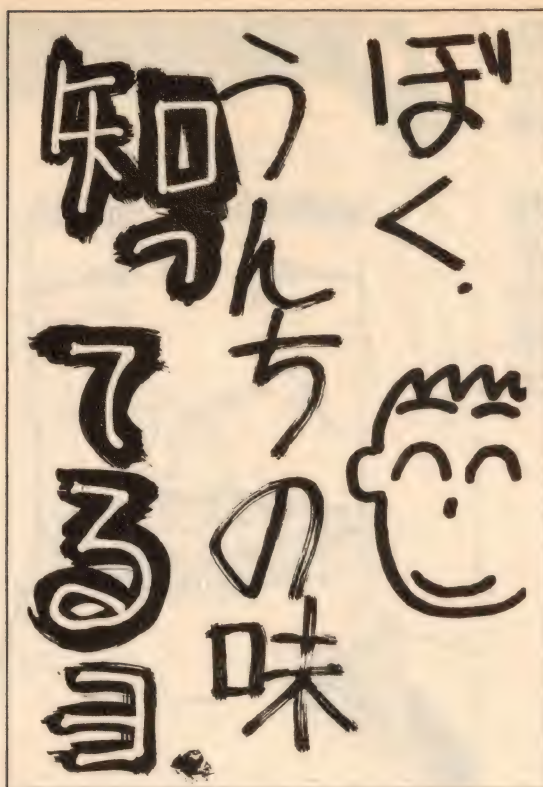 ぼく.
うんちの味
知ってるヨ.